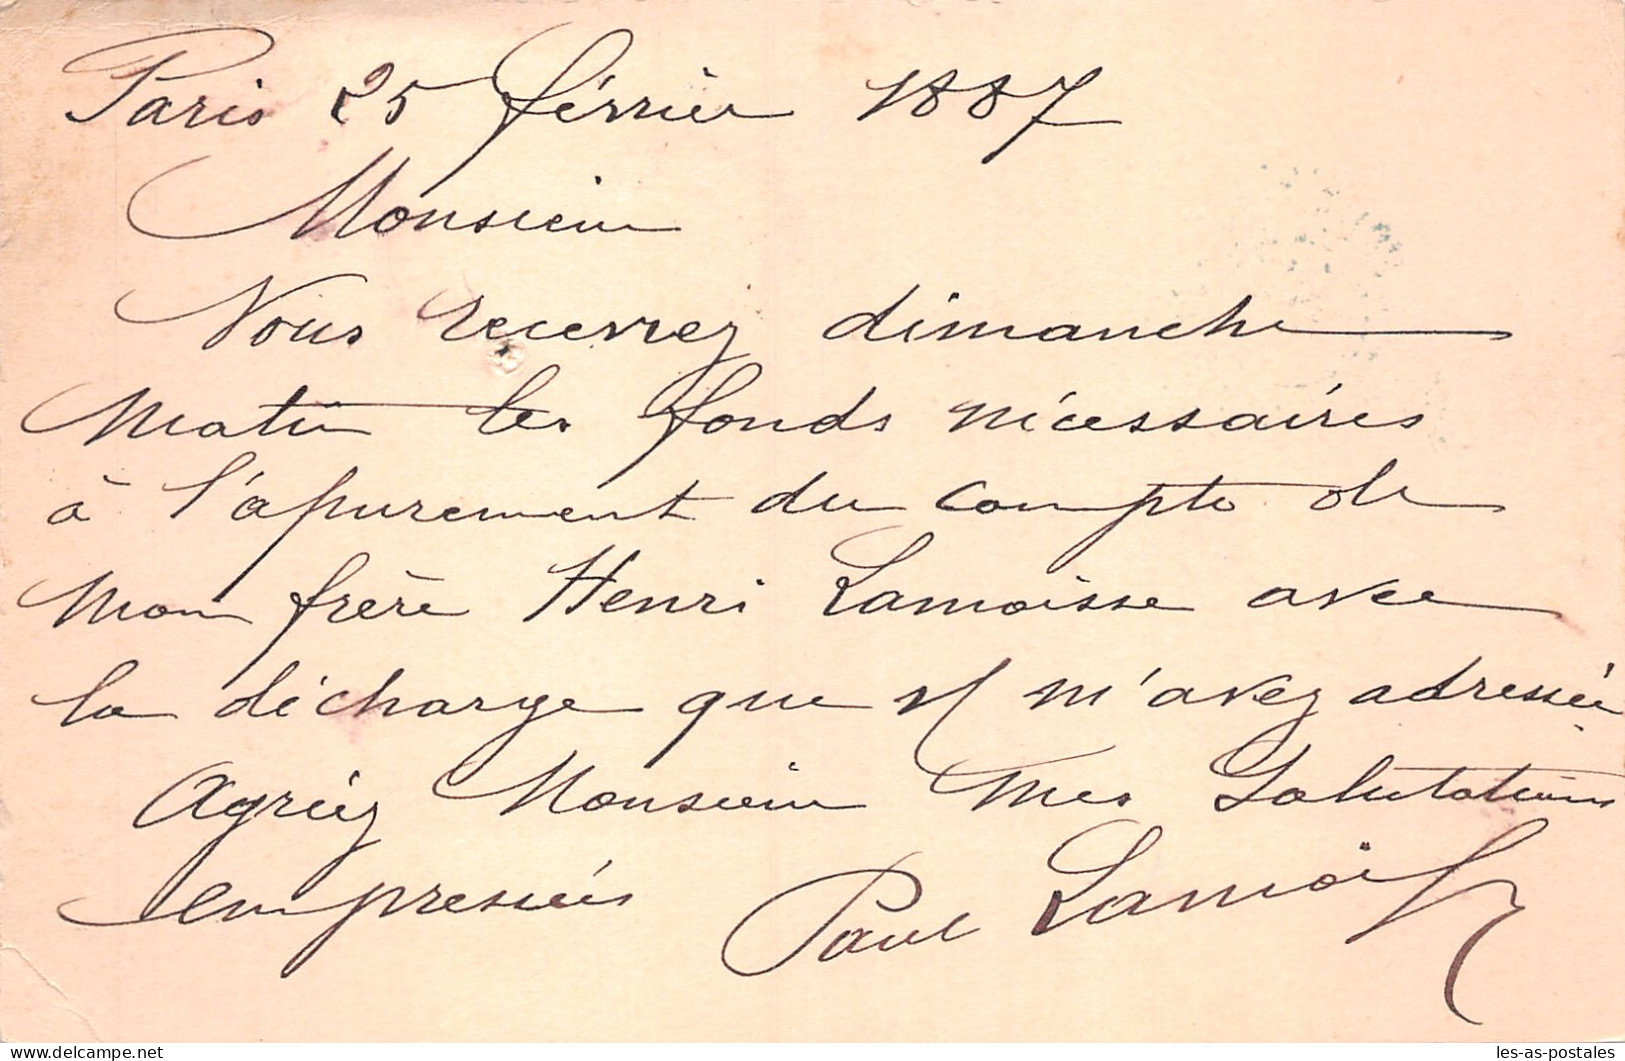 Paris 25 février 1887
Monsieur
Vous recevrez dimanche
matin les fonds nécessaires
à l'apurement du compte de
mon frère Henri Lamoisse avec
la décharge que v/ m'avez adressée
Agréez Monsieur mes Salutations
empressées Paul Lamoisse
les-as-postales